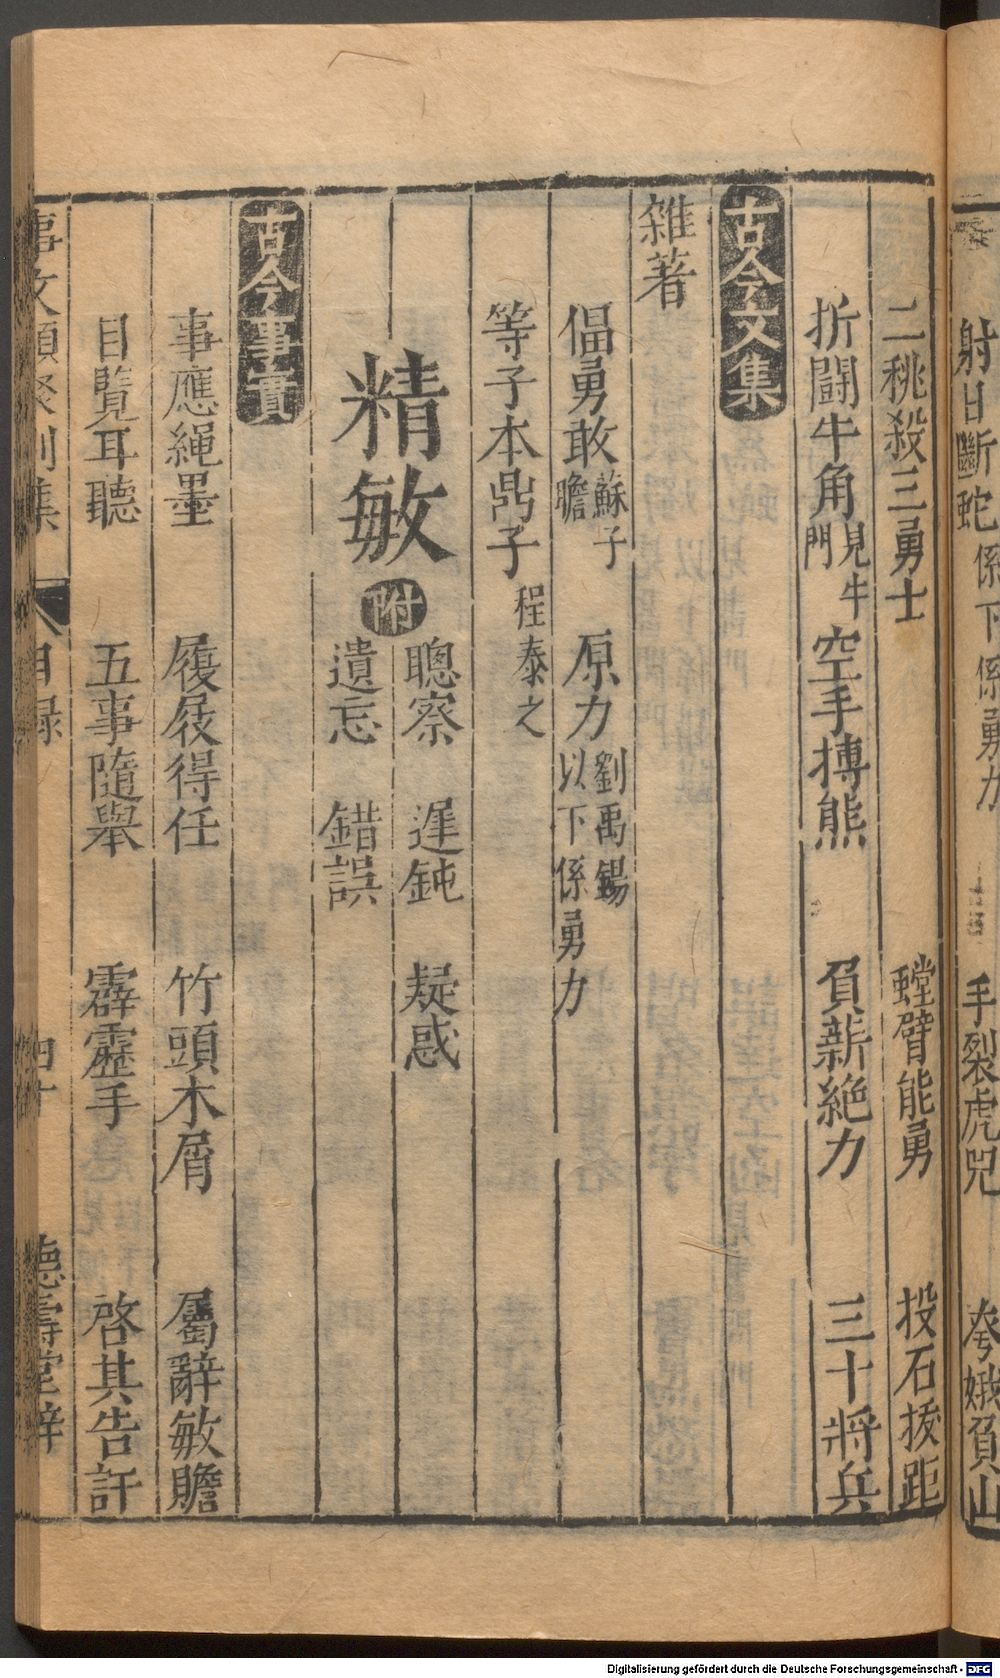 射日斷蛇係下係勇力 手裂虎兕 夸娥負山
二桃殺三勇士 螳臂能勇 投石拔距
折鬪牛角見牛門 空手搏熊 負薪絶力 三十將兵
古今文集
雜著
倡勇敢蘇子瞻 原力劉禹錫以下係勇力
等子本鼎子程泰之
聰察 遲鈍 疑惑
精敏 附
遺忘 錯誤
古今事實
事應繩墨 履屐得任 竹頭木屑 屬辭敏贍
目覽耳聽 五事隨舉 霹靂手 啓其告訐
事文類聚別集 目録 四十 德壽堂梓
Digitalisierung gefördert durch die Deutsche Forschungsgemeinschaft - DFG